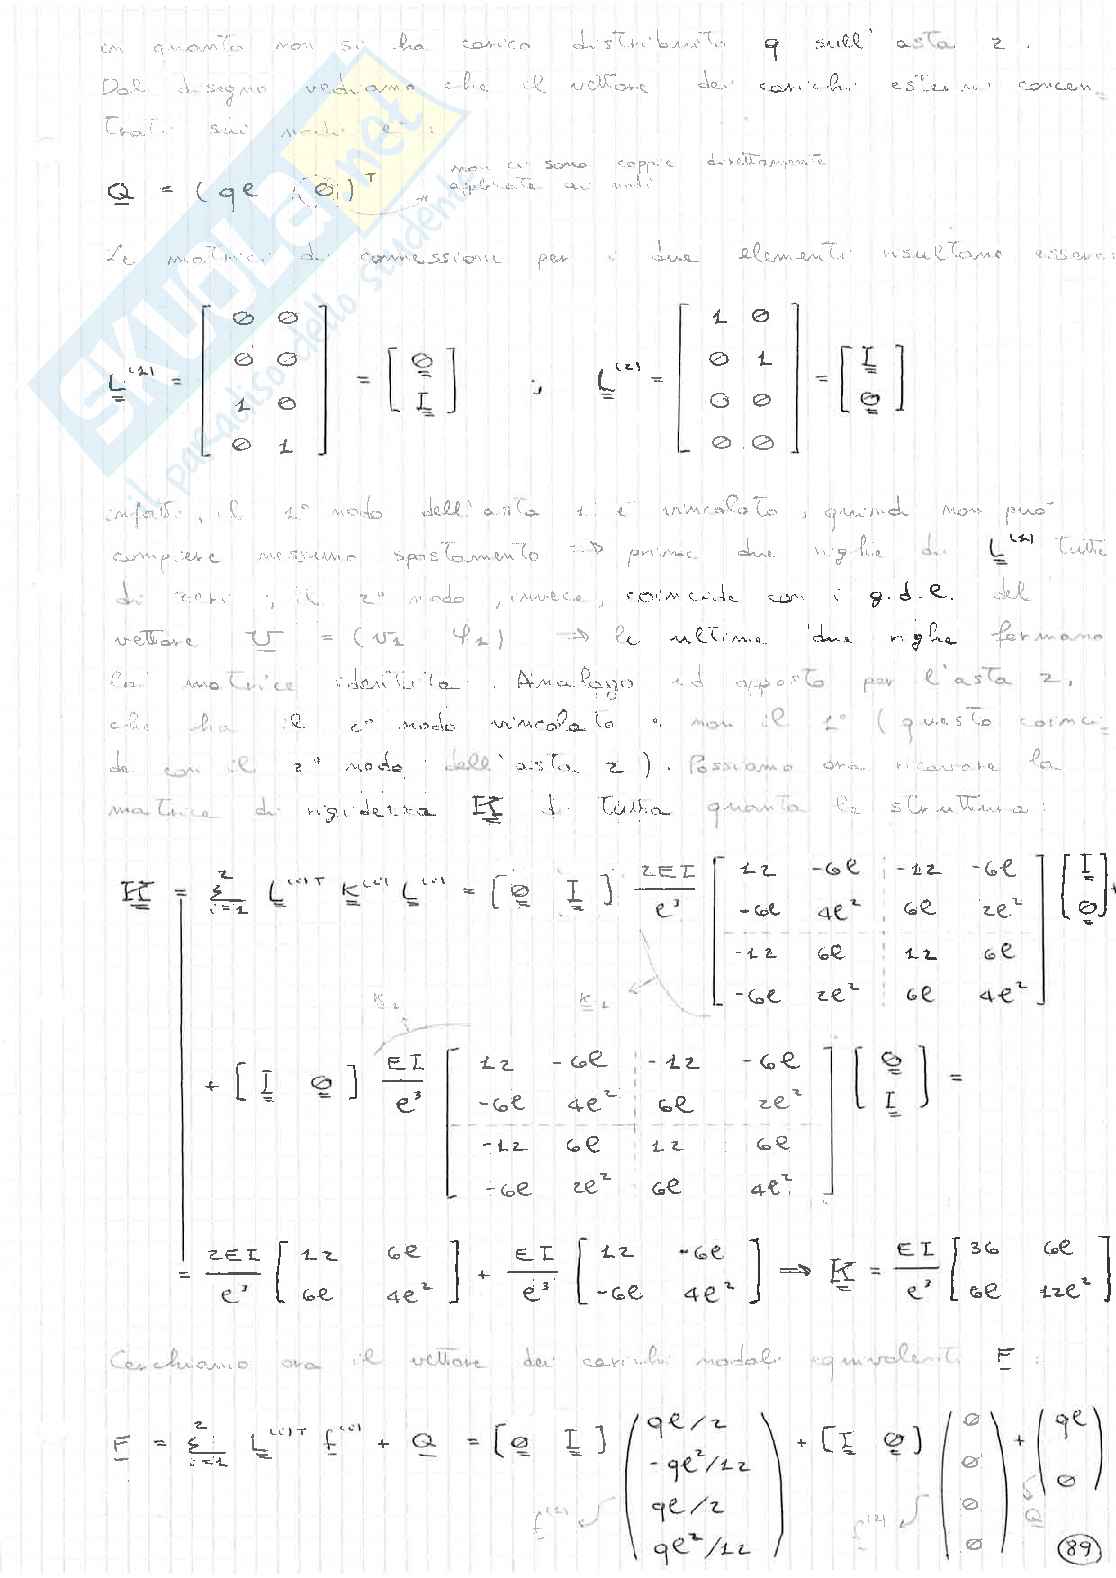 in quanto non si ha carico distribuito q sull'asta 2.
Dal disegno vediamo che il vettore dei carichi esterni concen=
trati sui nodi è:
Q = (ql 0)ᵀ non ci sono coppie direttamente
applicate ai nodi
Le matrici di connessione per i due elementi risultano essere:
L⁽¹⁾ = [0 0; 0 0; 1 0; 0 1] = [0; I] ; L⁽²⁾ = [1 0; 0 1; 0 0; 0 0] = [I; 0]
infatti, il 1° nodo dell'asta 1 è vincolato, quindi non può
compiere nessuno spostamento => prime due righe di L⁽¹⁾ tutte
di zeri; il 2° nodo, invece, coincide con i g.d.l. del
vettore U = (v₂ φ₂) => le ultime due righe formano
la matrice identità. Analogo ed opposto per l'asta 2,
che ha il 2° nodo vincolato e non il 1° (questo coinci=
de con il 2° nodo dell'asta 2). Possiamo ora ricavare la
matrice di rigidezza K di tutta quanta la struttura:
K = Σ i=1 2 L⁽ⁱ⁾ᵀ K⁽ⁱ⁾ L⁽ⁱ⁾ = [0 I] 2EI/l³ [12 -6l -12 -6l; -6l 4l² 6l 2l²; -12 6l 12 6l; -6l 2l² 6l 4l²] [I; 0] +
K₂ K₁
+ [I 0] EI/l³ [12 -6l -12 -6l; -6l 4l² 6l 2l²; -12 6l 12 6l; -6l 2l² 6l 4l²] [0; I] =
= 2EI/l³ [12 6l; 6l 4l²] + EI/l³ [12 -6l; -6l 4l²] => K = EI/l³ [36 6l; 6l 12l²]
Cerchiamo ora il vettore dei carichi nodali equivalenti F:
F = Σ i=1 2 L⁽ⁱ⁾ᵀ f⁽ⁱ⁾ + Q = [0 I] (ql/2; -ql²/12; ql/2; ql²/12) + [I 0] (0; 0; 0; 0) + (ql; 0)
f⁽¹⁾ f⁽²⁾ Q
89
SKUOLA.net
il paradiso dello studente